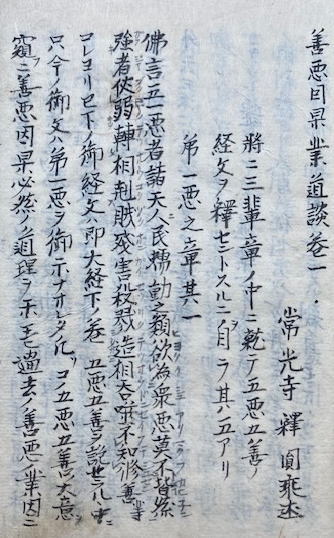 善悪因果業道談巻一
常光寺 釋圓乘述
將ニ三輩章ノ中ニ乾テ五悪五善ノ
経文ヲ釋セントスルニ自ラ其ハ五アリ
第一悪之章其一
佛言一悪者諸天人民蠕動之類欲為衆悪莫不皆然
強者伏弱轉相剋賊残害殺戮造相呑噬不知修善等
コレヨリ已下ノ御経文ハ即大経下ノ巻 五悪五善ヲ説セラル中ニ
只今ノ御文ハ第一悪ヲ御示ナオレタル コノ五悪五善ノ大意
窺ニ善悪因果必然ノ道理ヲ示 過去ノ善悪ノ業因ニ